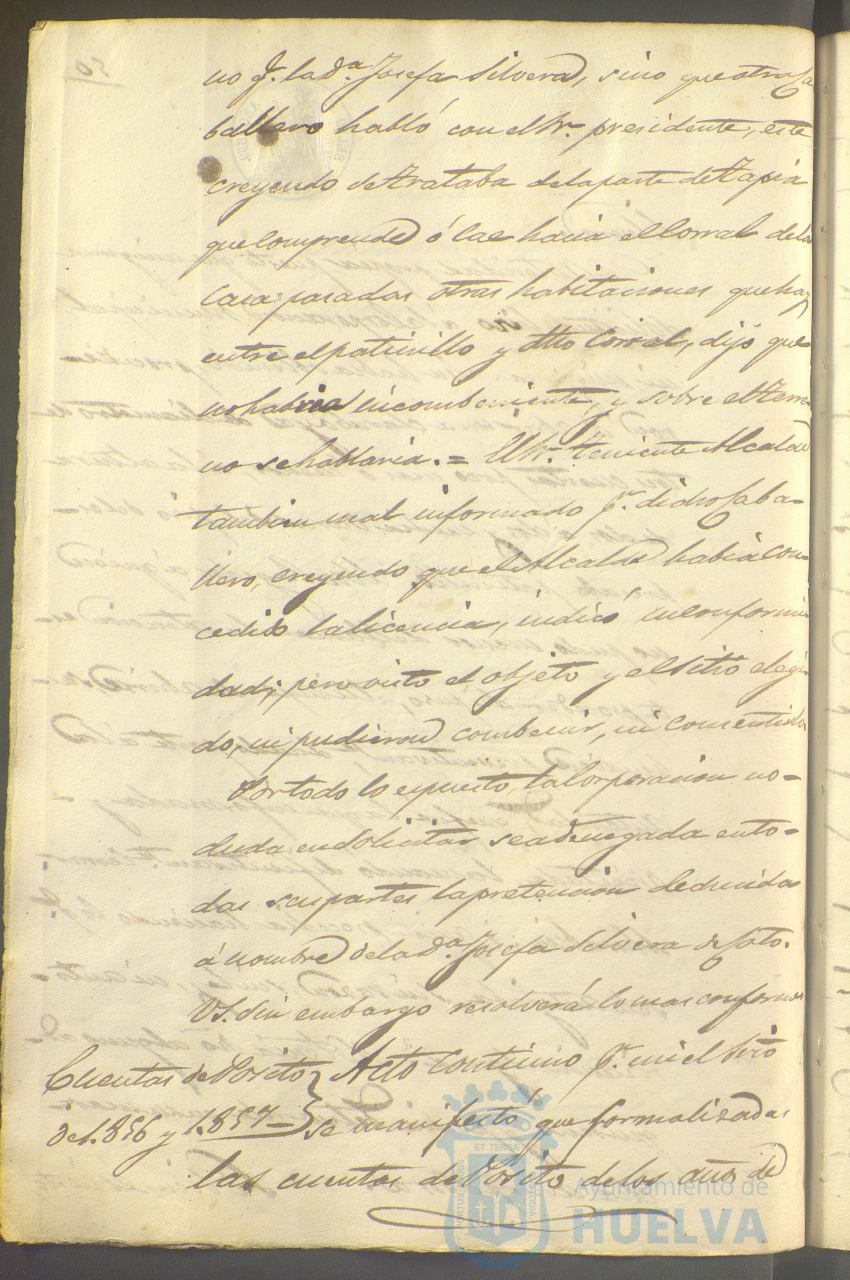 no p.r la d.a Josefa Silvera, sino que otro Ca
ballero habló con el Sr. presidente, este
creyendo se trataba de la parte de tapia
que comprende ó cae hacia el Corral de la
casa pasadas otras habitaciones que hay
entre el patinillo y dho Corral, dijo que
no habria incombeniente, y sobre el terre
no se hablaria. = El Sr. teniente Alcalde
tambien mal informado p.r dicho Caba-
llero, creyendo que el Alcalde habia con-
cedido la licencia, indicó su conformi
dad; pero visto el objeto y el sitio elegi-
do, ni pudieron combenir, ni consentirlo
Por todo lo espuesto, la Corporacion no-
duda en solicitar sea denegada en to-
das sus partes la pretencion deducida
á nombre de la d.a Josefa Silvera de Soto.
VS. sin embargo resolverá lo mas conforme
Cuentas de Posito
de 1.856 y 1.857
Acto continuo p.r mi el Srio
se manifestó que formalizadas
las cuentas de Posito de los años de
Ayuntamiento de
HUELVA